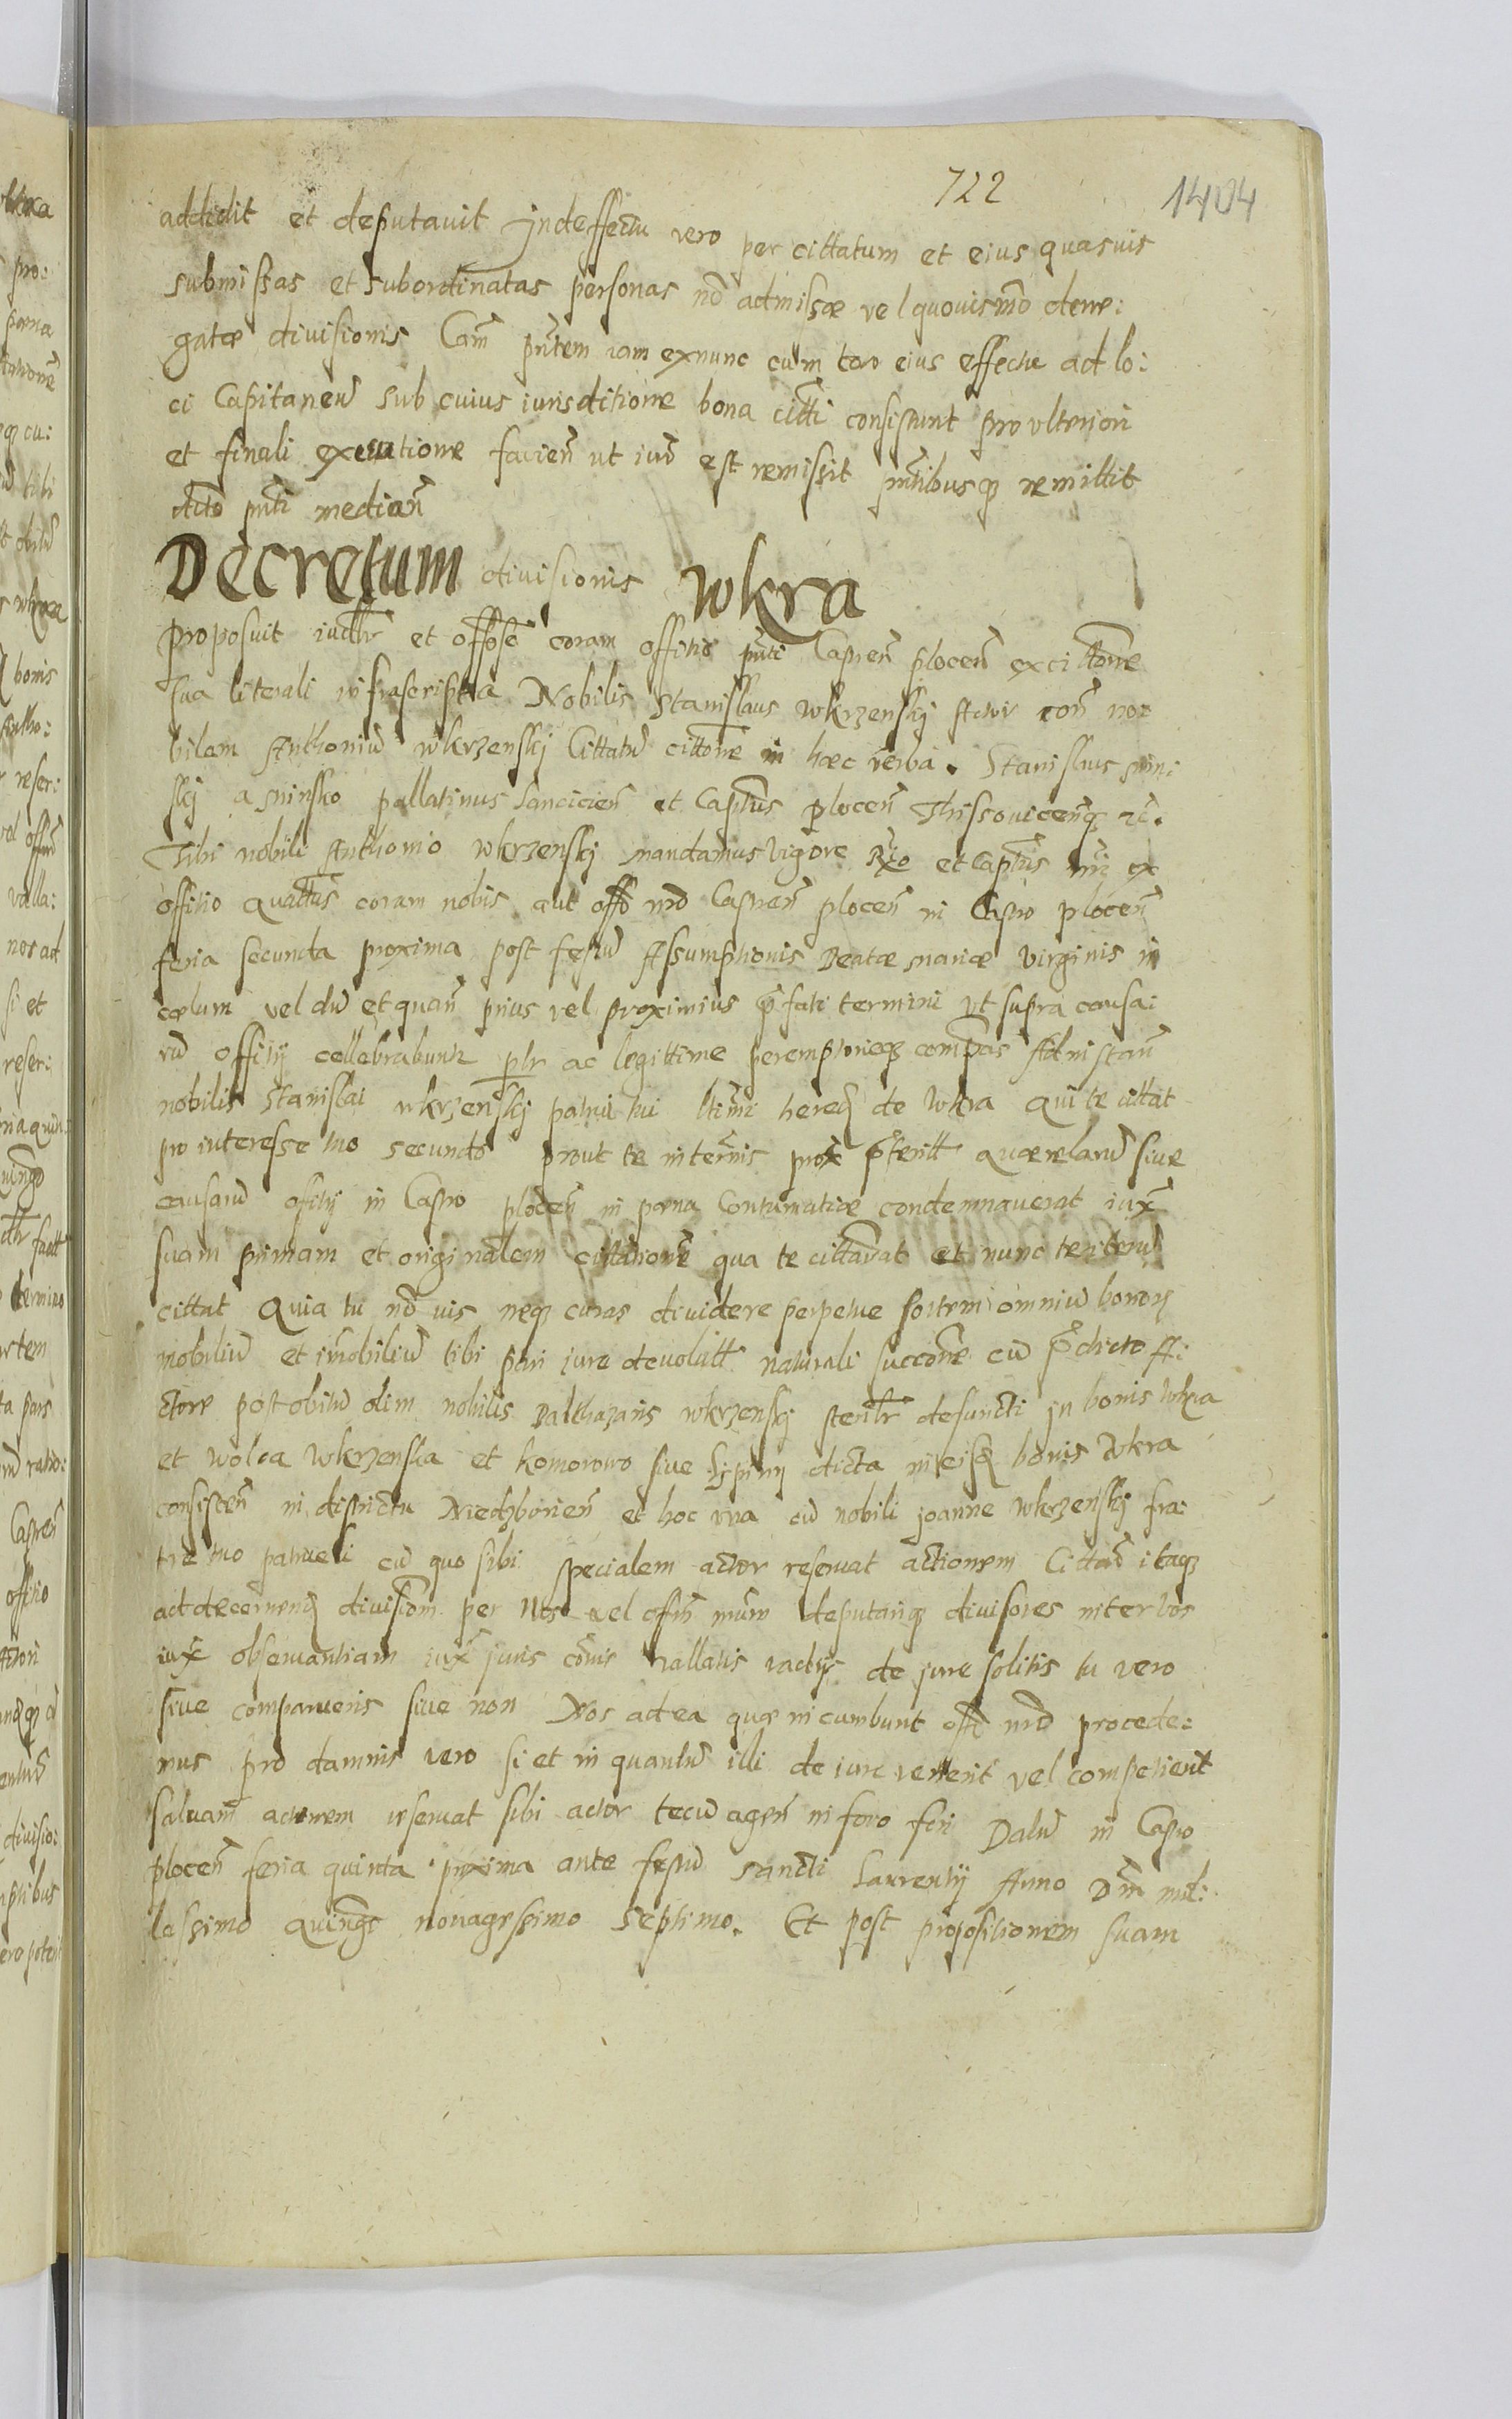 722 1404
addidit et deputavit Indeffectu vero per cittatum et eius quasuis
submissas et subordinatas personas nō admissæ vel quouismō dene:
gatæ divisionis Cam̄ pn̄tem iam exnunc cum toto eius effectu ad lo:
ci Capitaneū sub cuius iurisditione bona citti consistunt pro vlteriori
et finali executione facien̄ ut iud est remissit pn̄tibusq remittit
dcto pn̄ti median̄
Decretum divisionis Wkra
Proposuit iudlr et offose coram offitio pn̄ti Castren̄ plocen̄ ex cittone
sua literali infrascripta Nobilis Stanislaus Wkrzenskj Actor con̄ no:
bilem Anthoniū Wkrzenskj Cittatū cittone in hæc verba. Stanislaus min:
skj a minsko pallatinus Lancicien̄ et Captn̄s plocen̄
Tibi nobili Anthonio Wkrzenskj mandamus vigore et Captn̄s nrī ex
offitio quattus coram nobis aut offo nrō Castren̄ plocen̄ in Castro plocen̄
feria secunda proxima post festū Assumptionis Beatæ mariæ virginis in
cælum vel dū et quan̄ prius vel proximius p̄fati termini vt supra causa:
rū offitij cellebrabuntr plr ac legittime peremptorieq compas Ad instan̄
nobilis Stanislai wkrzenskj patrui tui ltimi hered de Wkra qui te cittat
pro interesse tuo secundo prout te in termis prox p̄terit quærelarū siue
causarū ofitij in Castro plocen̄ in pœna Contumatiæ condemnauerat iux
suam primam et originalem cittatione qua te cittarat et nunc te iterū
cittat Quia tu nō vis neq curas dividere perpetue sortem omniū bonor
mobiliū et imobiliū tibi pari iure devolutt naturali succone cū p̄dicto A:
ctore post obitū olim nobilis Balthazaris wkrzenskj sterilr defuncti in bonis Wkra
et Wolca Wkrzenska et Komorowo siue Lipiny dicta in eisd bonis Wkra
consisten̄ in districtu Niedzborien̄ et hoc vna cū nobili joanne wkrzenskj fra:
tre tuo patrueli cū quo sibi specialem actor reseruat actionem Cittaris itaq
ad decernend division̄ per Nos vel offm̄ nrum deputariq divisores inter vos
iux obseruantiam iux juris cōnis vallatis vadijs de jure solitis tu vero
siue comparueris siue non Nos ad ea quæ incumbunt offo nrō procede:
mus pro damnis vero si et in quantū illi de iure venerit vel competierit
saluam actionem reseruat sibi actor tecū agen̄ in foro fori Datū in Castro
plocen̄ feria quinta proxima ante festū Sancti Laurentij Anno Dn̄i mil:
lessimo quingō nonagessimo septimo. Et post propositionem suam